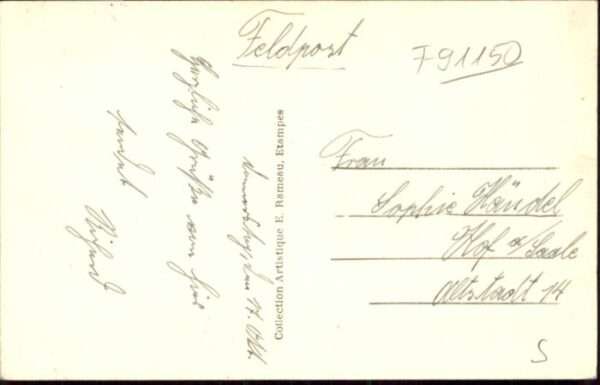 Feldpost
F 91150
den 17. Okt.
Herzliche Grüße von hier
sendet
Collection Artistique E. Rameau, Etampes
Frau
Sophie Händel
Hof a/Saale
Altstadt 14
S